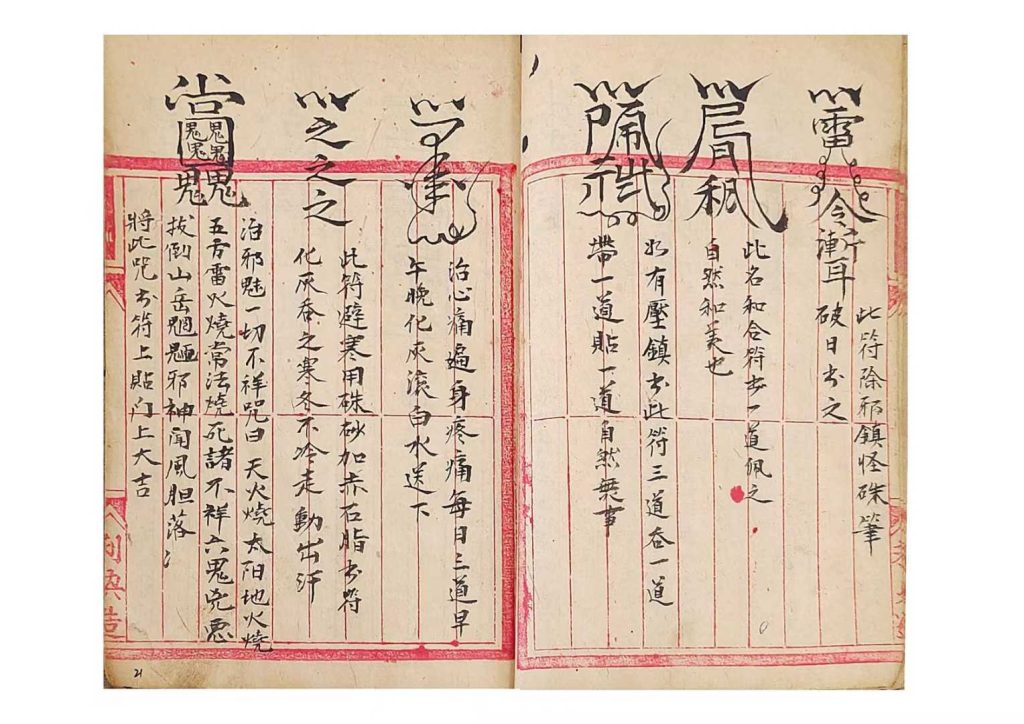 此符除邪鎮怪硃筆
破日书之
此名和合符书一道佩之
自然和美也
如有壓鎮书此符三道吞一道
帶一道貼一道自然無事
治心痛遍身疼痛每日三道早
午晚化灰滾白水送下
此符避寒用硃砂加赤石脂书符
化灰吞之寒冬不冷走動出汗
治邪魅一切不祥咒曰天火燒太阳地火燒
五方雷火燒常法燒死諸不祥六鬼兇惡
拔倒山岳邪神闻風胆落
將此咒书符上貼门上大吉
21